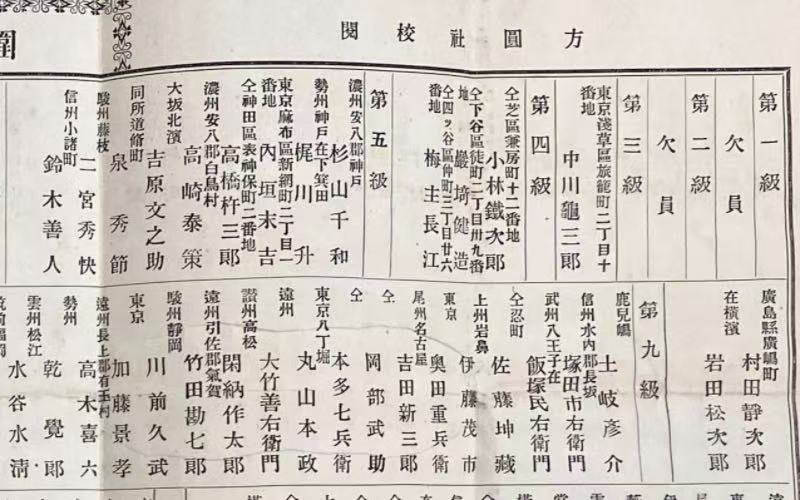 方圓社校閲
第一級
欠員
第二級
欠員
第三級
東京淺草區旅籠町二丁目十番地
中川龜三郎
第四級
仝芝區兼房町十二番地
小林鐵次郎
仝下谷區徒町二丁目卅九番地
巖埼健造
仝四ッ谷區仲町三丁目廿六番地
梅主長江
第五級
濃州安八郡神戸
杉山千和
勢州神戸在下箕田
梶川升
東京麻布區新網町二丁目一番地
內垣末吉
仝神田區表神保町二番地
高橋杵三郎
濃州安八郡白鳥村
高崎泰策
大坂北濱
吉原文之助
同所道脩町
泉秀節
駿州藤枝
二宮秀快
信州小諸町
鈴木善人
廣島縣廣嶋町
村田靜次郎
在橫濱
岩田松次郎
第九級
鹿兒嶋
土岐彥介
信州水內郡長坂
塚田市右衛門
武州八王子在
飯塚民右衛門
仝忍町
佐藤坤藏
上州岩鼻
伊藤茂市
東京
奥田重兵衛
尾州名古屋
吉田新三郎
仝
岡部武助
仝
本多七兵衛
東京八丁堀
丸山本政
遠州
大竹善右衛門
讃州高松
閑納作太郎
遠州引佐郡氣賀
竹田勘七郎
駿州靜岡
川前久武
東京
加藤景孝
遠州長上郡有玉村
高木喜六
勢州
乾覺郎
雲州松江
水谷水清